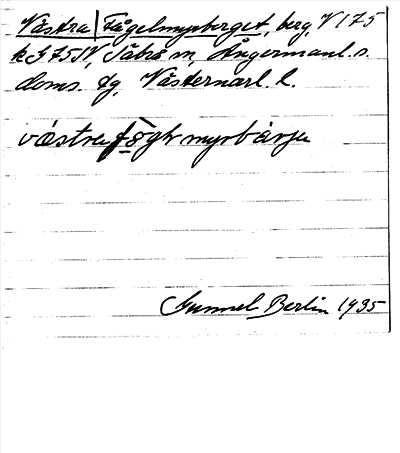 Västra Fågelmyrberget, berg, V 175
k J 75 N, Säbrå sn, Ångermanl. s.
doms. fg, Västernorl. l.
västra fōgk myrbärje
Gunnel Berlin 1935